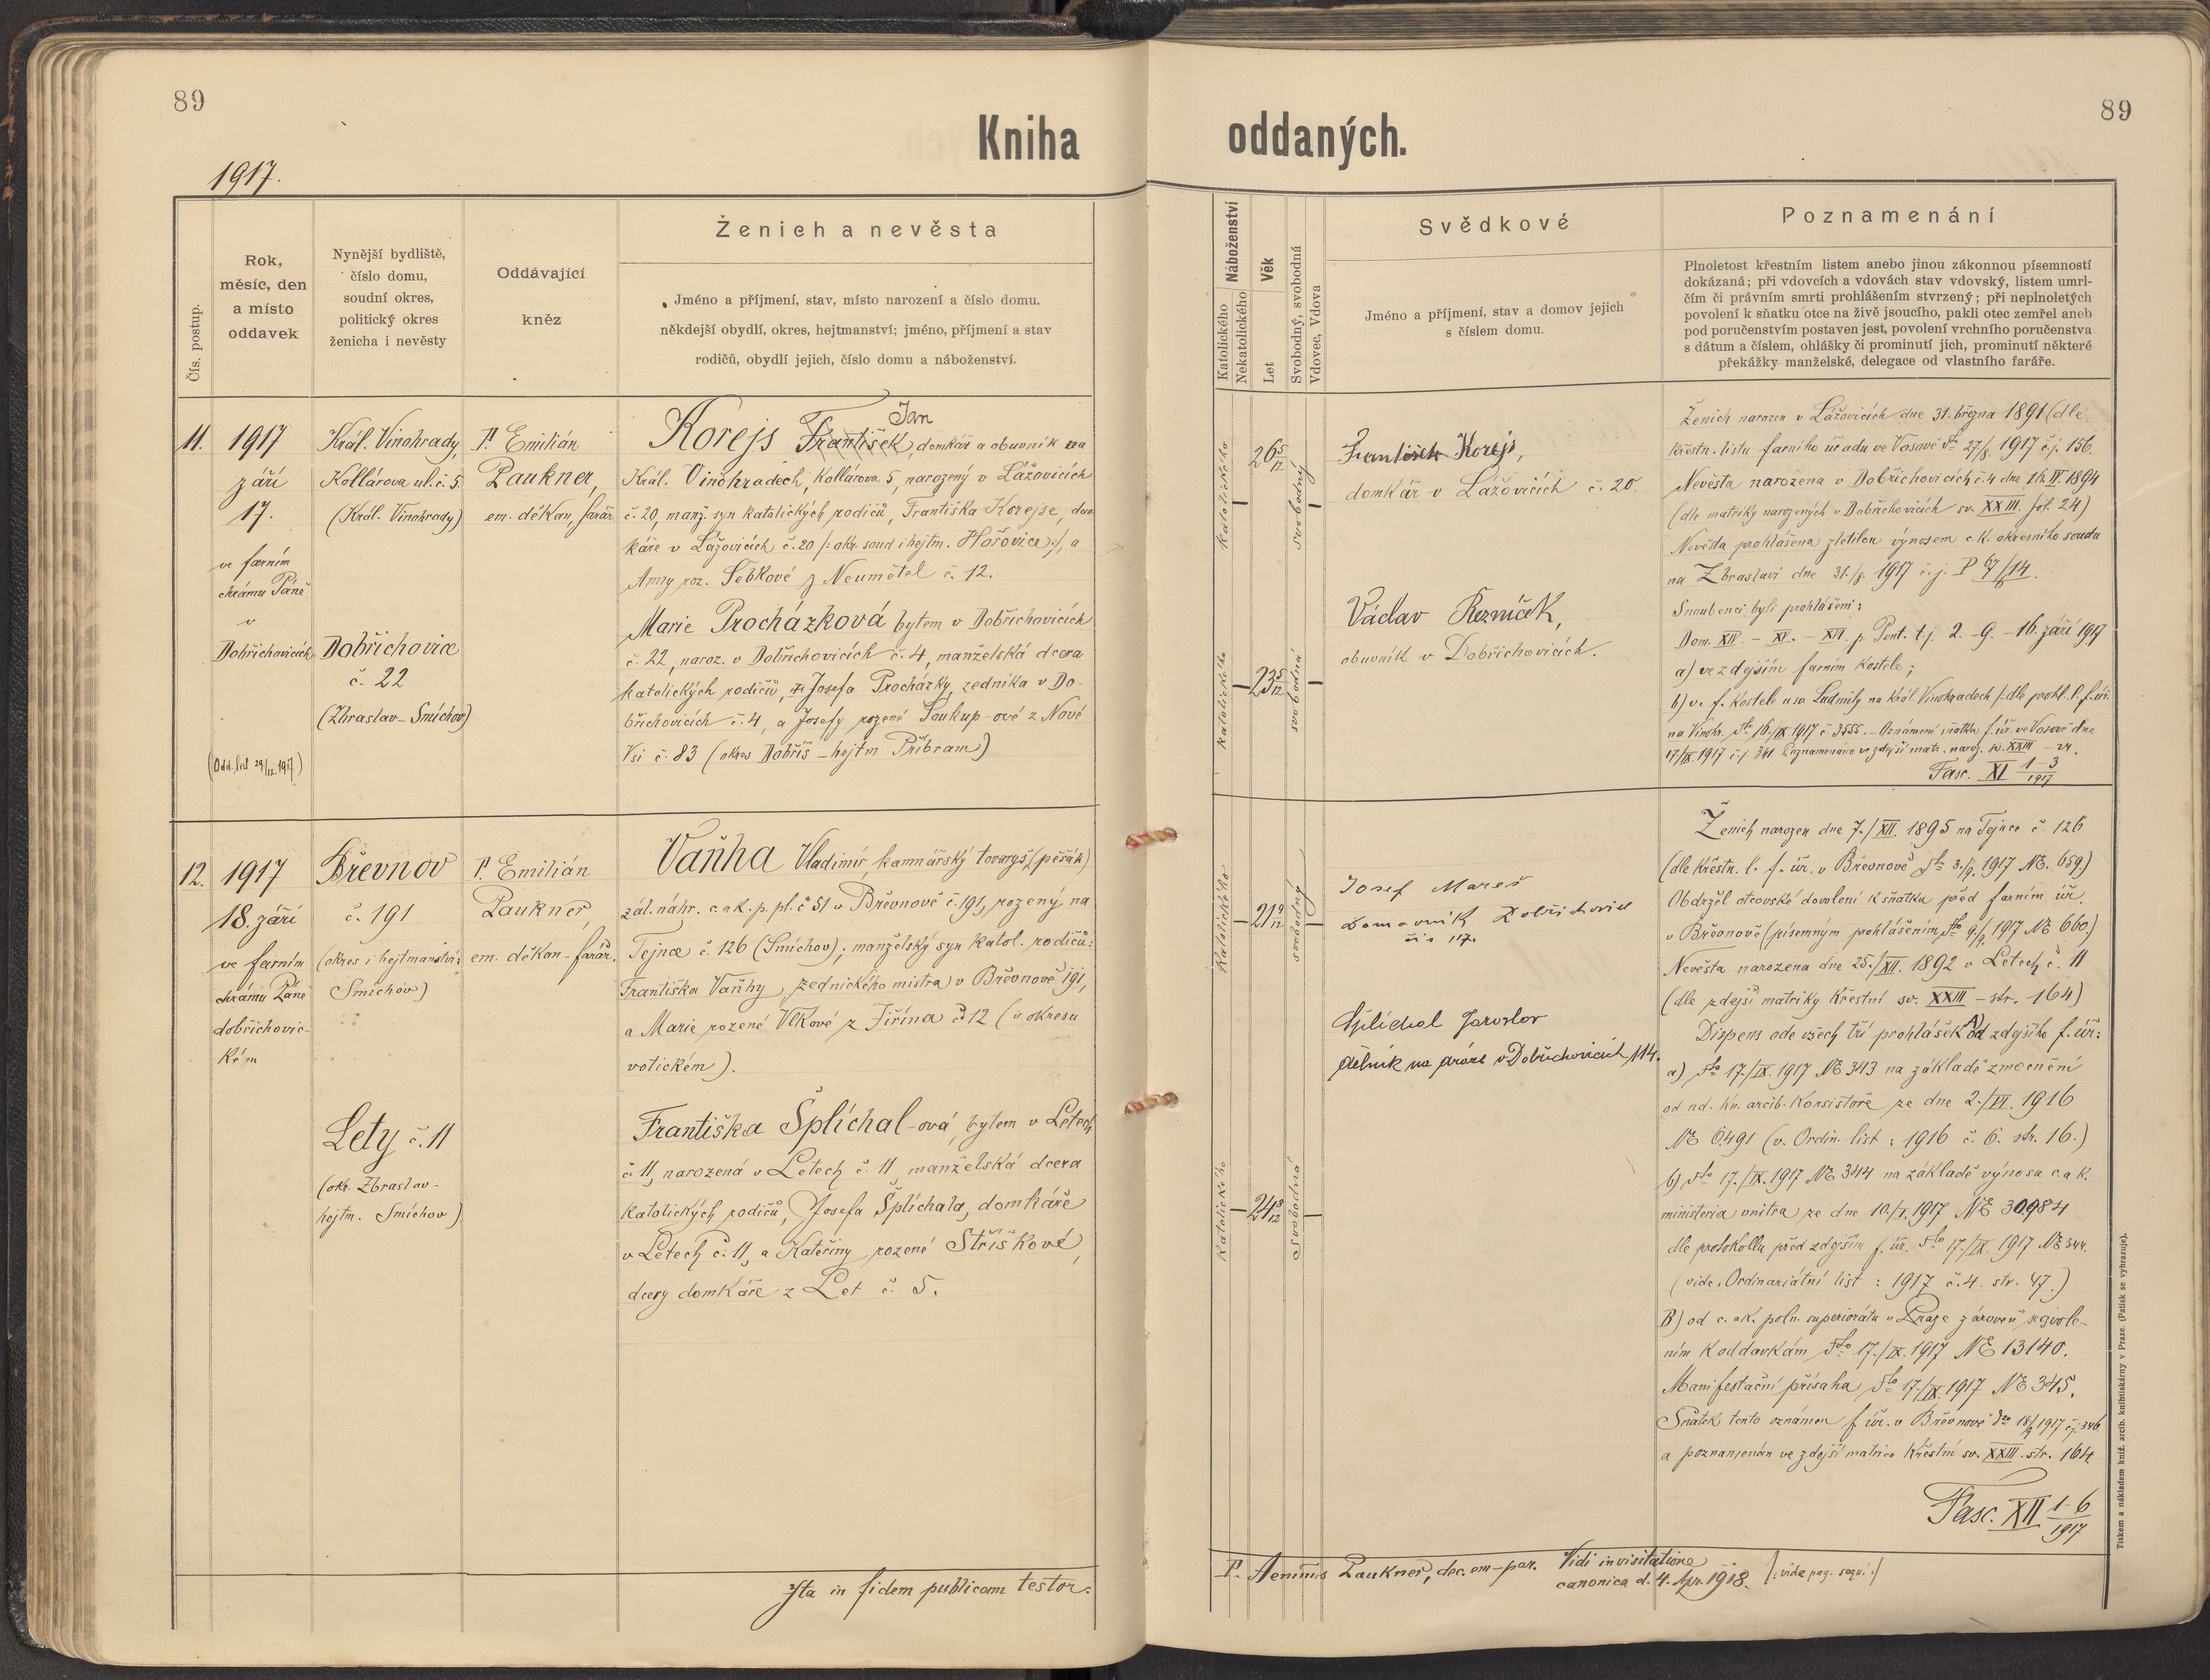 89
89
Kniha oddaných.
1917.
Čís. postup.
Rok,
měsíc, den
a místo
oddavek
Nynější bydliště,
číslo domu,
soudní okres,
politický okres
ženicha i nevěsty
Oddávající
kněz
Ženich a nevěsta
Jméno a příjmení, stav, místo narození a číslo domu,
někdejší obydlí, okres, hejtmanství; jméno, příjmení a stav
rodičů, obydlí jejich, číslo domu a náboženství.
Náboženství
Katolického
Nekatolického
Věk
Let
Svobodný, svobodná
Vdovec, Vdova
Svědkové
Jméno a příjmení, stav a domov jejich
s číslem domu.
Poznamenání
Plnoletost křestním listem anebo jinou zákonnou písemností
dokázaná; při vdovcích a vdovách stav vdovský, listem umrl-
čím či právním smrti prohlášením stvrzený; při neplnoletých
povolení k sňatku otce na živě jsoucího, pakli otec zemřel aneb
pod poručenstvím postaven jest, povolení vrchního poručenstva
s dátum a číslem, ohlášky či prominutí jich, prominutí některé
překážky manželské, delegace od vlastního faráře.
11.
1917
září
17.
ve farním
chrámu Páně
v
Dobřichovicích
(Odd. list 29/12.1917)
Král. Vinohrady,
Kollárova ul. č. 5.
(Král. Vinohrady)
Dobřichovice
č. 22
(Zbraslav - Smíchov)
P. Emilián
Paukner,
em. děkan, farář
Jan
Korejs František, domkář a obuvník na
Král. Vinohradech, Kollárova 5, narozený v Lážovicích
č. 20, manž. syn katolických rodičů, Františka Korejse, dom
káře v Lážovicích č. 20 /: okr. soud i hejtm. Hořovice :/, a
Anny roz. Šebkové z Neumětel č. 12.
Marie Procházková bytem v Dobřichovicích
č. 22, naroz. v Dobřichovicích č. 4, manželská dcera
katolických rodičů, Josefa Procházky, zedníka v Do-
břichovicích č. 4, a Josefy rozené Soukup-ové z Nové
Vsi č. 83 (okres Dobříš - hejtm Příbram)
katolického
26 5/12
svobodný
katolického
23 5/12
svobodná
František Korejs,
domkář v Lážovicích č. 20.
Václav Řezníček,
obuvník v Dobřichovicích.
Ženich narozen v Lážovicích dne 31. března 1891 (dle
křestn. listu farního úřadu ve Vosově dto 27/8. 1917 č.j. 156.
Nevěsta narozena v Dobřichovicích č. 4 dne 16. IV. 1894
(dle matriky narozených v Dobřichovicích sv. XXIII. fol. 24)
Nevěsta prohlášena zletilou výnosem c.k. okresního soudu
na Zbraslavi dne 31./8. 1917 č.j. P 67/14.
Snoubenci byli prohlášeni:
Dom. XIV. - XV. - XVI. p. Pent. t.j. 2. - 9. - 16. září 1917
a) ve zdejším farním kostele;
b) v f. kostele u sv. Ludmily na Král. Vinohradech /: dle prohl. l. f. úř.
na Vinohr. dto 16./IX. 1917 č. 3555. - Oznámení sňatku f. úř. ve Vosově dne
17/IX. 1917 č.j. 341. Poznamenáno ve zdejší matr. naroz. sv. XXIII - 24.
Fasc. XI 1-3/1917
12.
1917
18. září
ve farním
chrámu Páně
dobřichovic-
kém
Břevnov
č. 191
(okres i hejtmanství:
Smíchov)
Lety č. 11
(okr. Zbraslav -
hejtm. Smíchov)
P. Emilián
Paukner,
em. děkan - farář.
Vaňha Vladimír, kamnářský tovaryš, (pěšák)
zál. náhr. c. a k. p. pl. č 51 v Břevnově č. 191, rozený na
Tejnce č. 126 (Smíchov); manželský syn katol. rodičů:
Františka Vaňhy, zednického mistra v Břevnově 191,
a Marie rozené Vlkové z Jiřína č 12 (v okresu
votickém).
Františka Šplíchal-ová, bytem v Letech
č. 11, narozená v Letech č. 11, manželská dcera
katolických rodičů, Josefa Šplíchala, domkáře
v Letech č. 11, a Kateřiny rozené Stříškové,
dcery domkáře z Let č. 5.
Katolického
21 9/12
svobodný
Katolického
24 8/12
svobodná
Josef Mareš
Domovník Dobřichovice
čís 117.
Šplíchal Jaroslav
dělník na dráze v Dobřichovicích 114.
Ženich narozen dne 7./XII. 1895 na Tejnce č. 126
(dle křestn. l. f. úř. v Břevnově dto 3./9. 1917 № 659.)
Obdržel otcovské dovolení k sňatku před farním úř.
v Břevnově (písemným prohlášením dto 9/9. 1917 № 660)
Nevěsta narozena dne 25./XII. 1892 v Letech č. 11
(dle zdejší matriky křestní sv. XXIII - str. 164)
Dispens ode všech tří prohlášek A) od zdejšího f. úř:
a) dto 17./IX. 1917 № 343 na základě zmocnění
od nd. kn. arcib. Konsistoře ze dne 2./VI. 1916
№ 6491 (v. Ordin. list: 1916 č. 6. str. 16.)
b) dto 17./IX. 1917 № 344 na základě výnosu c. a k.
ministeria vnitra ze dne 10./V. 1917 № 30984
dle protokollu před zdejším f. úř. dto 17./IX. 1917 № 344.
(vide Ordinariátní list: 1917 č. 4. str. 47.)
B) od c. a k. poln. superiorátu v Praze zároveň s svole-
ním k oddavkám dto 17./IX. 1917 № 13140.
Manifestační přísaha dto 17./IX. 1917 № 345.
Sňatek tento oznámen f. úř. v Břevnově dto 18/9 1917 č.j. 346
a poznamenán ve zdejší matrice křestní sv. XXIII. str. 164.
Fasc. XII 1-6/1917
Ita in fidem publicam testor:
P. Aemilius Paukner, dec. em-par.
Vidi in visitatione
canonica d. 4. Apr. 1918.
/: vide pag. sequ. :/
Tiskem a nákladem kníž. arcib. knihtiskárny v Praze. (Patisk se vyhrazuje).